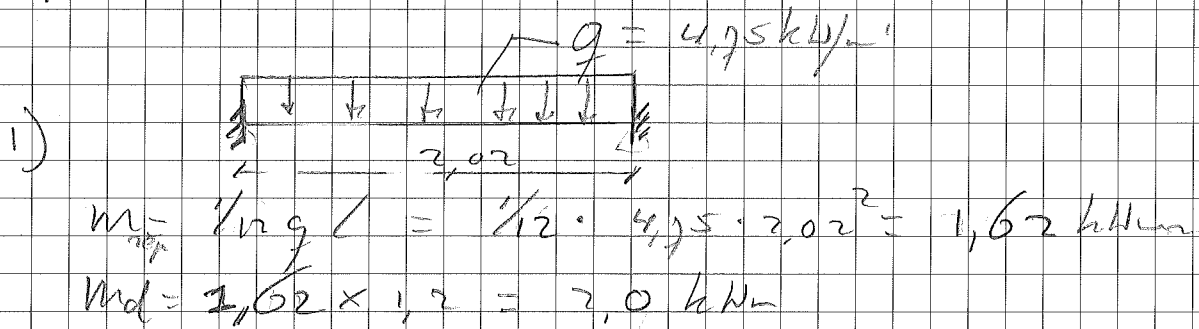 q = 4,75 kN/m'
1)
2,02
M rep = 1/12 q l = 1/12 · 4,75 · 2,02² = 1,62 kNm
Md = 1,62 × 1,2 = 2,0 kNm